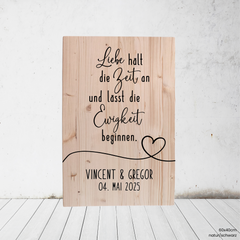 Liebe hält
die Zeit an
und lässt die
Ewigkeit
beginnen.
VINCENT & GREGOR
04. MAI 2025
60x40cm
natur/schwarz